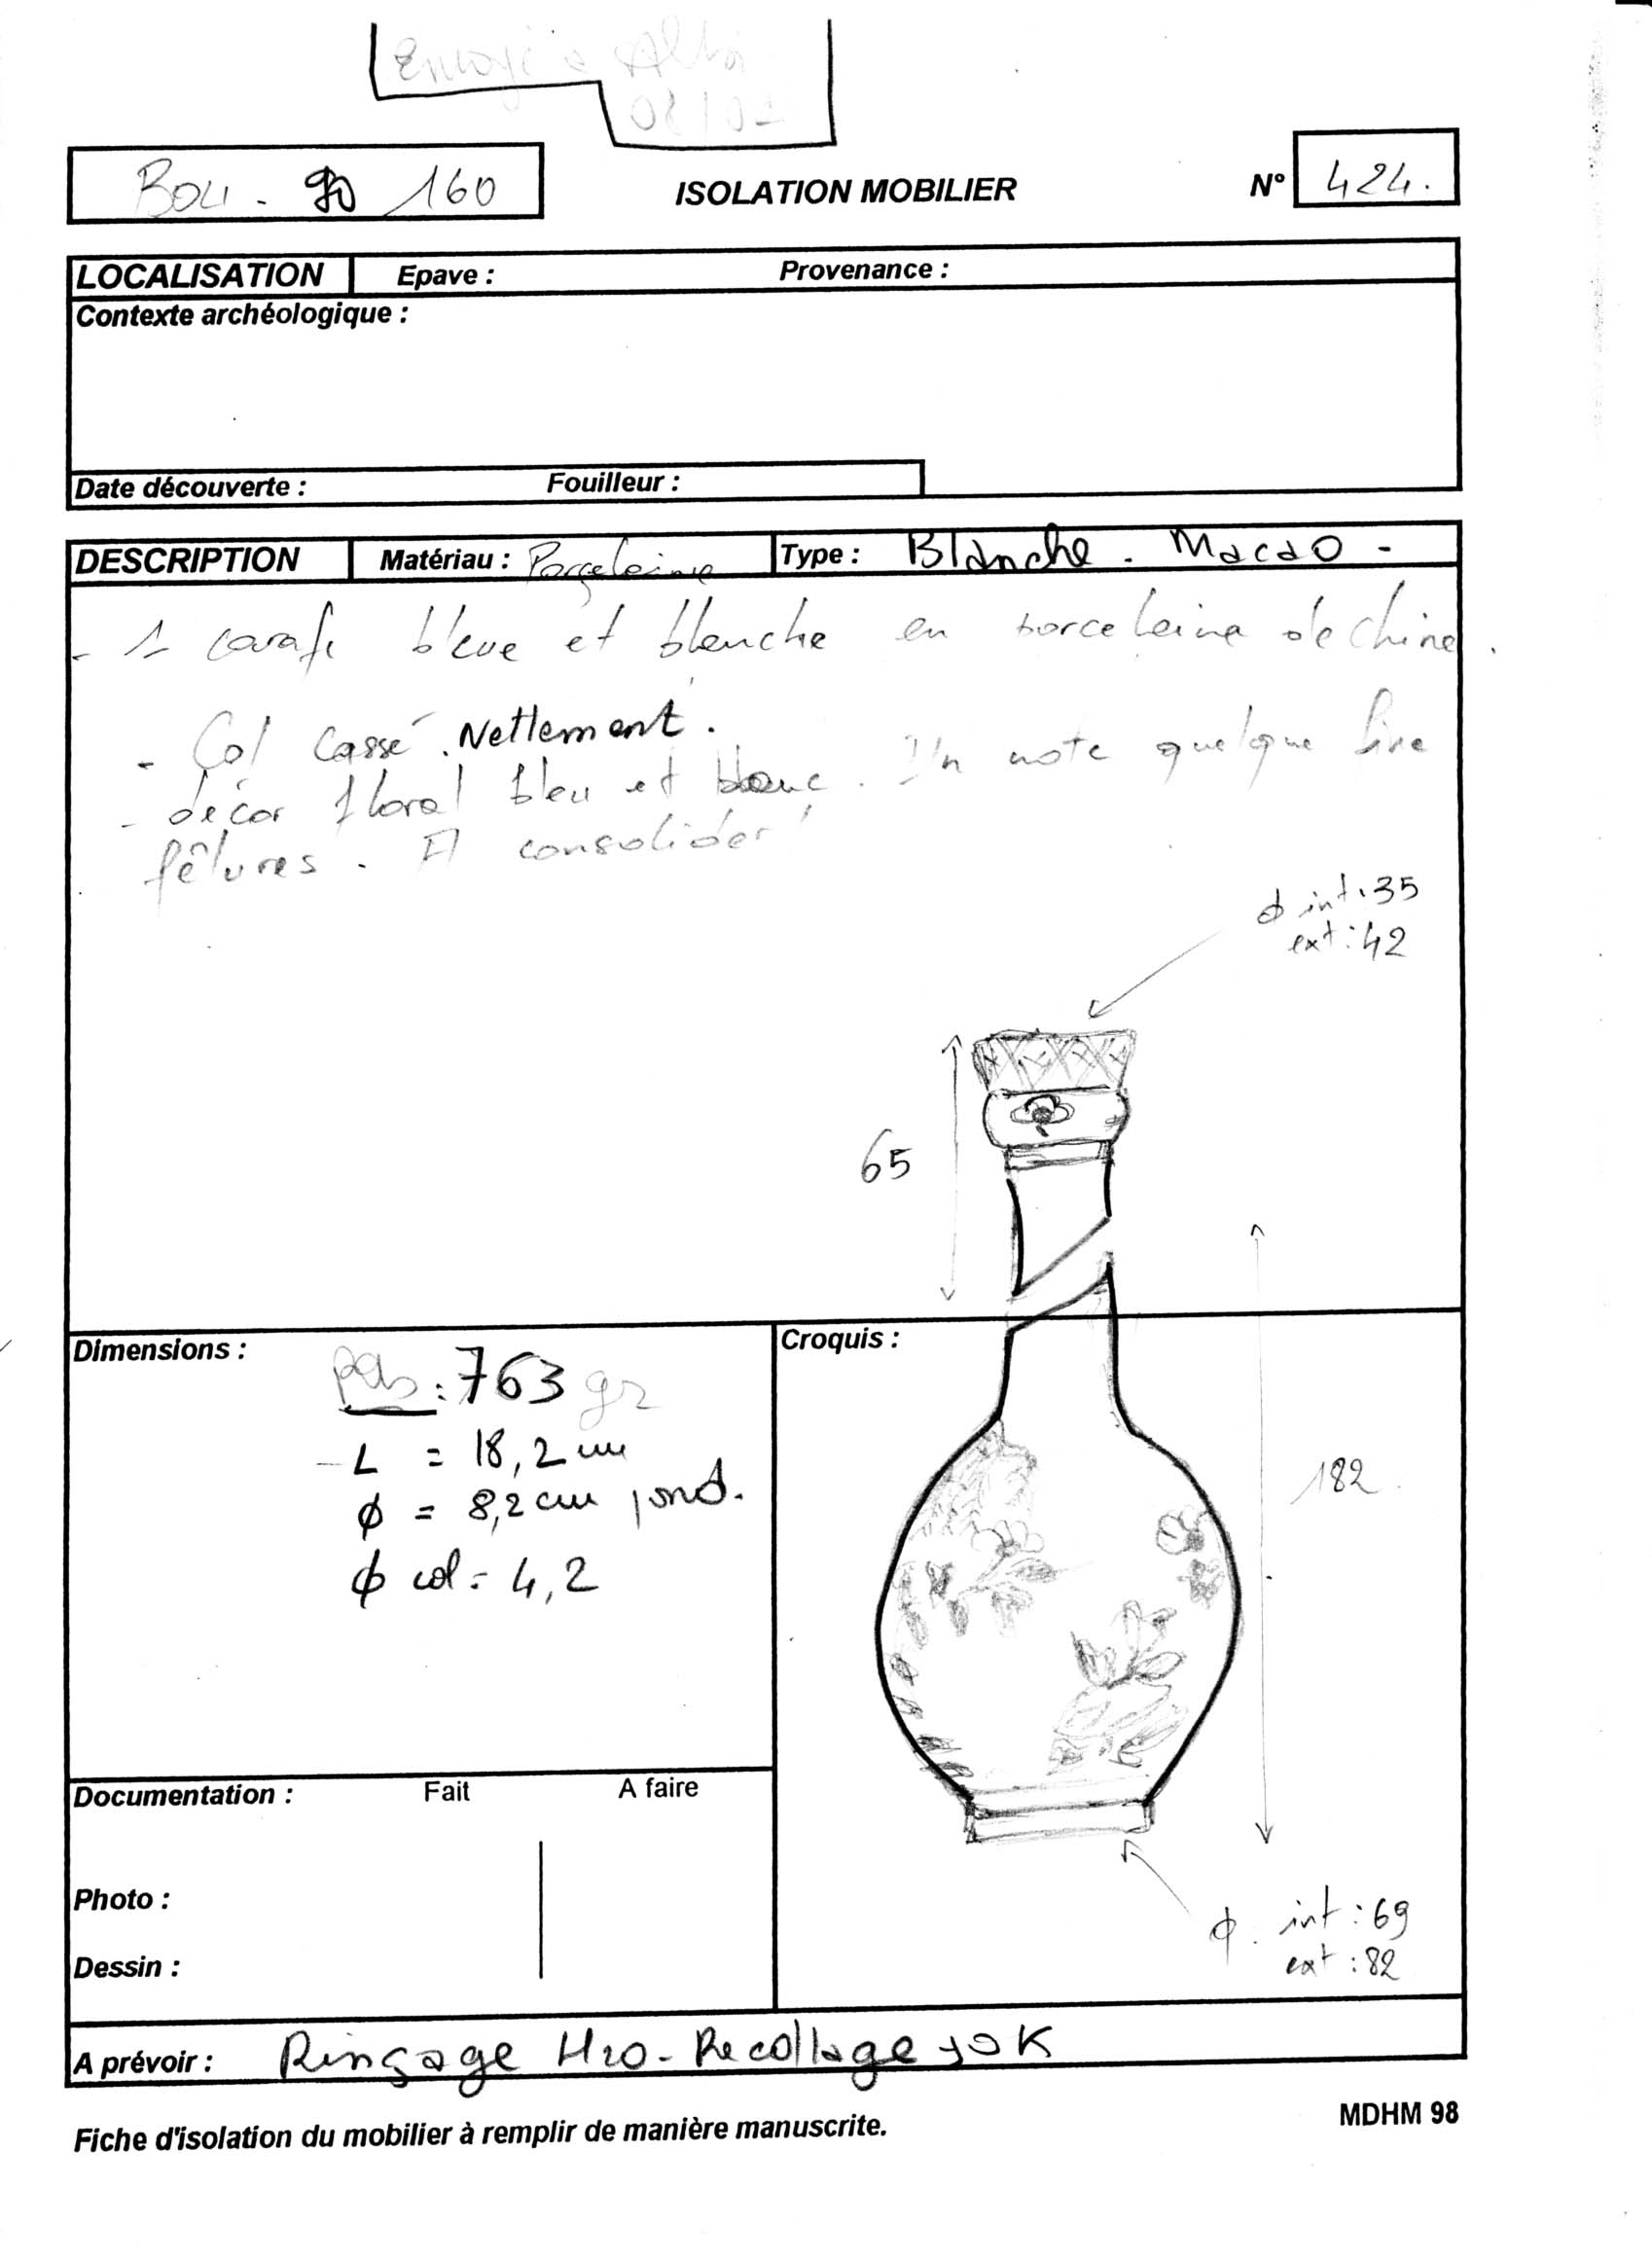 Envoyé à Albi
08/02
BOU - 160
ISOLATION MOBILIER
N° 424.
LOCALISATION Epave : Provenance :
Contexte archéologique :
Date découverte : Fouilleur :
DESCRIPTION Matériau : Porçeleine Type : Blanche - Macao -
- 1 carafe bleue et blanche en porceleine de Chine.
- Col Cassé. Nettement.
- décor floral bleu et blanc. On note quelque fine
fêlures. A consolider !
ϕ int : 35
ext : 42
65
Dimensions :
Pds : 763 gr
- L = 18,2 cm
ϕ = 8,2 cm fond.
ϕ col = 4,2
Croquis :
182
ϕ. int : 69
ext : 82
Documentation : Fait A faire
Photo :
Dessin :
A prévoir : Rinçage H2O - Recollage OK
Fiche d'isolation du mobilier à remplir de manière manuscrite.
MDHM 98